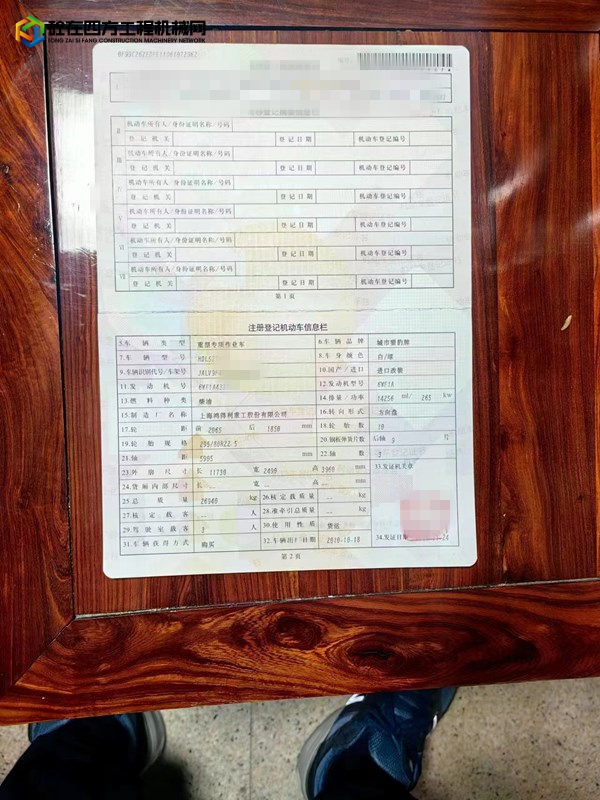 砼在四方工程机械网
TONG ZAI SI FANG CONSTRUCTION MACHINERY NETWORK
编号:
注册登记摘要信息栏
机动车所有人/身份证明名称/号码
登记机关 登记日期 机动车登记编号
机动车所有人/身份证明名称/号码
登记机关 登记日期 机动车登记编号
机动车所有人/身份证明名称/号码
登记机关 登记日期 机动车登记编号
机动车所有人/身份证明名称/号码
登记机关 登记日期 机动车登记编号
机动车所有人/身份证明名称/号码
登记机关 登记日期 机动车登记编号
机动车所有人/身份证明名称/号码
登记机关 登记日期 机动车登记编号
第1页
注册登记机动车信息栏
5.车辆类型 重型专项作业车 6.车辆品牌 城市猎豹牌
7.车辆型号 8.车身颜色 白/绿
9.车辆识别代号/车架号 10.国产/进口 进口改装
11.发动机号 12.发动机型号 6WF1A
13.燃料种类 柴油 14.排量/功率 14256 ml/ 265 kw
15.制造厂名称 上海鸿得利重工股份有限公司 16.转向形式 方向盘
17.轮距 前 2065 后 1850 mm 18.轮胎数 10
19.轮胎规格 295/80R22.5 20.钢板弹簧片数 后轴 9 片
21.轴距 5905 mm 22.轴数 3
23.外廓尺寸 长 11730 宽 2490 高 3960 mm 33.发证机关章
24.货厢内部尺寸 长 宽 高 mm
25.总质量 kg 26.核定载质量 kg
27.核定载客 人 28.准牵引总质量 kg
29.驾驶室载客 3 人 30.使用性质 货运
31.车辆获得方式 购买 32.车辆出厂日期 2010-10-18 34.发证日期
第2页